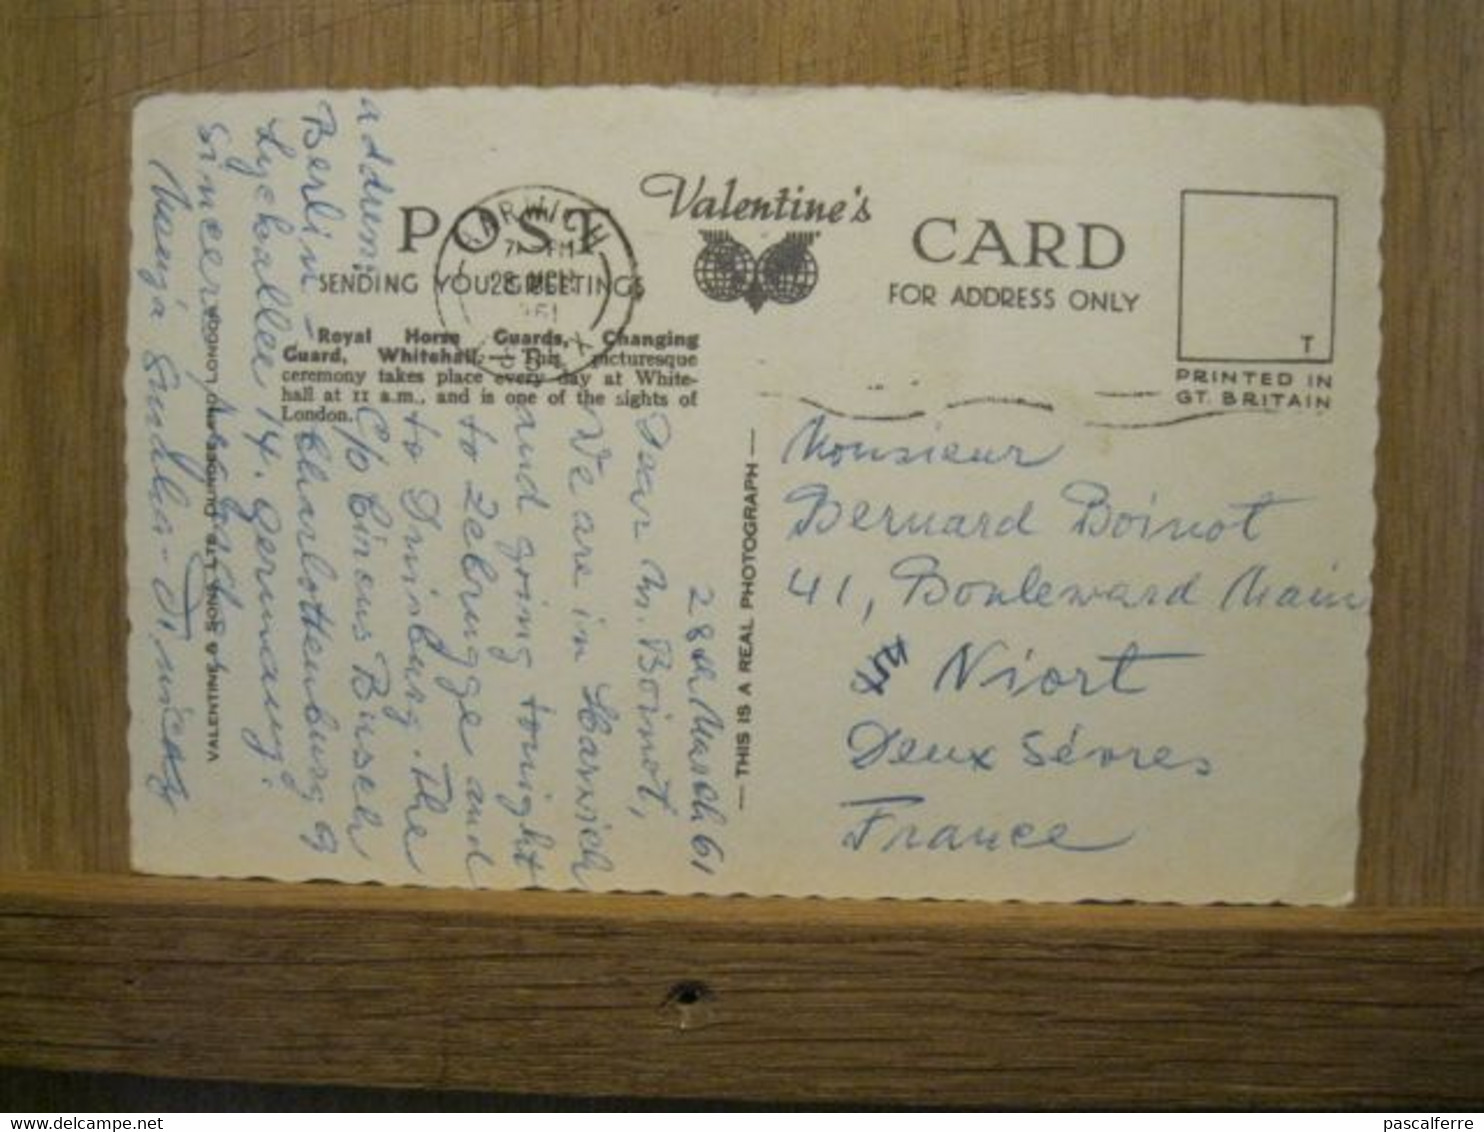 POST Valentine's CARD
SENDING YOU GREETINGS
FOR ADDRESS ONLY
T
PRINTED IN
GT. BRITAIN
HARWICH
28 MCH
Royal Horse Guards, Changing
Guard, Whitehall. — This picturesque
ceremony takes place every day at White-
hall at 11 a.m., and is one of the sights of
London.
— THIS IS A REAL PHOTOGRAPH —
VALENTINE & SONS LTD. DUNDEE AND LONDON
28th March 61
Dear M. Boinot,
We are in Harwich
and going tonight
to Zebrugge and
to Duisburg. The
address
C/o Circus Busch
Berlin - Charlottenburg 9
14. Germany.
Sincerely
Monsieur
Bernard Boinot
41, Boulevard Main
Niort
Deux Sévres
France
pascalferre